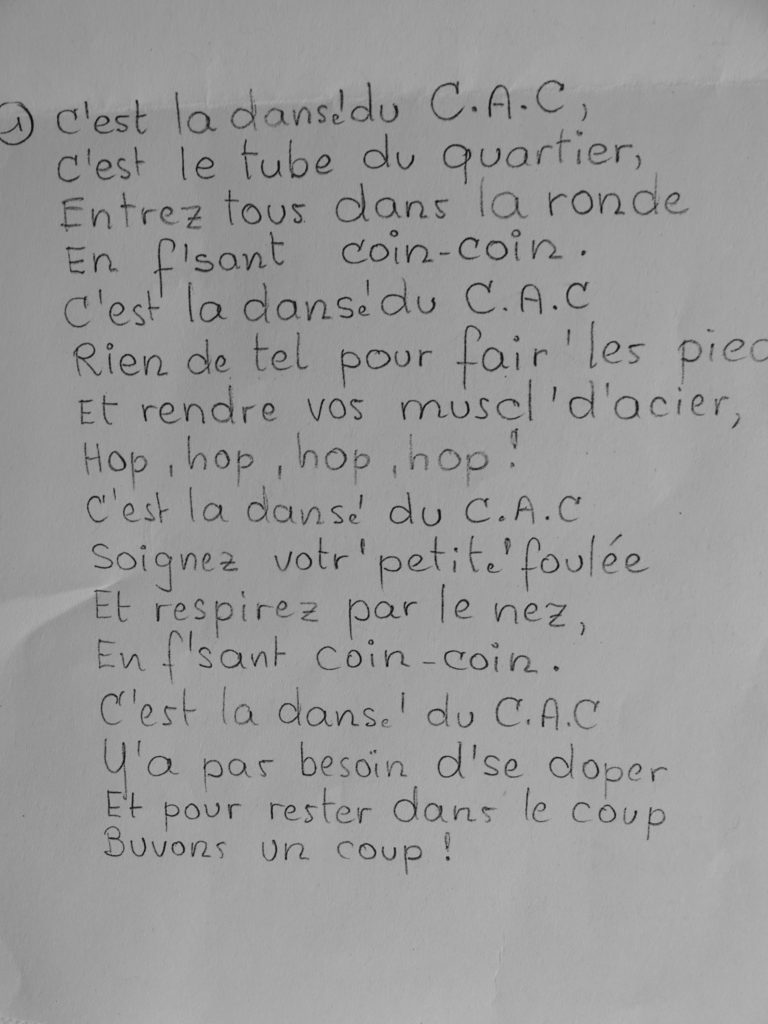 ① C'est la danse' du C.A.C,
C'est le tube du quartier,
Entrez tous dans la ronde
En f'sant coin-coin.
C'est la danse' du C.A.C
Rien de tel pour fair' les pied
Et rendre vos muscl' d'acier,
Hop, hop, hop, hop !
C'est la danse' du C.A.C
Soignez votr' petite' foulée
Et respirez par le nez,
En f'sant coin-coin.
C'est la danse' du C.A.C
Y'a pas besoin d'se doper
Et pour rester dans le coup
Buvons un coup !